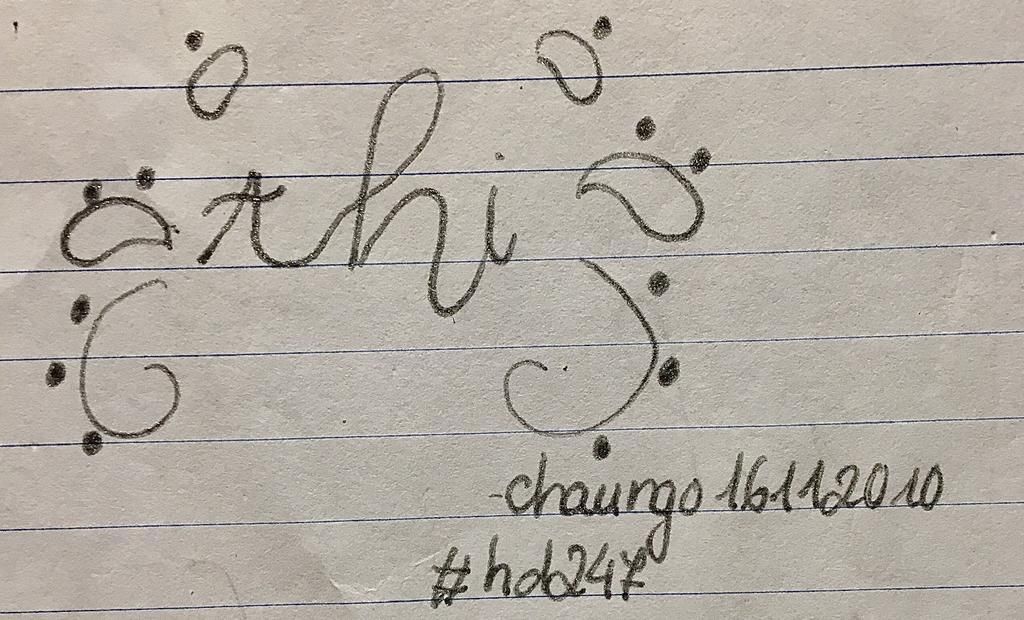 thi
-chaungo16112010
#hdb247